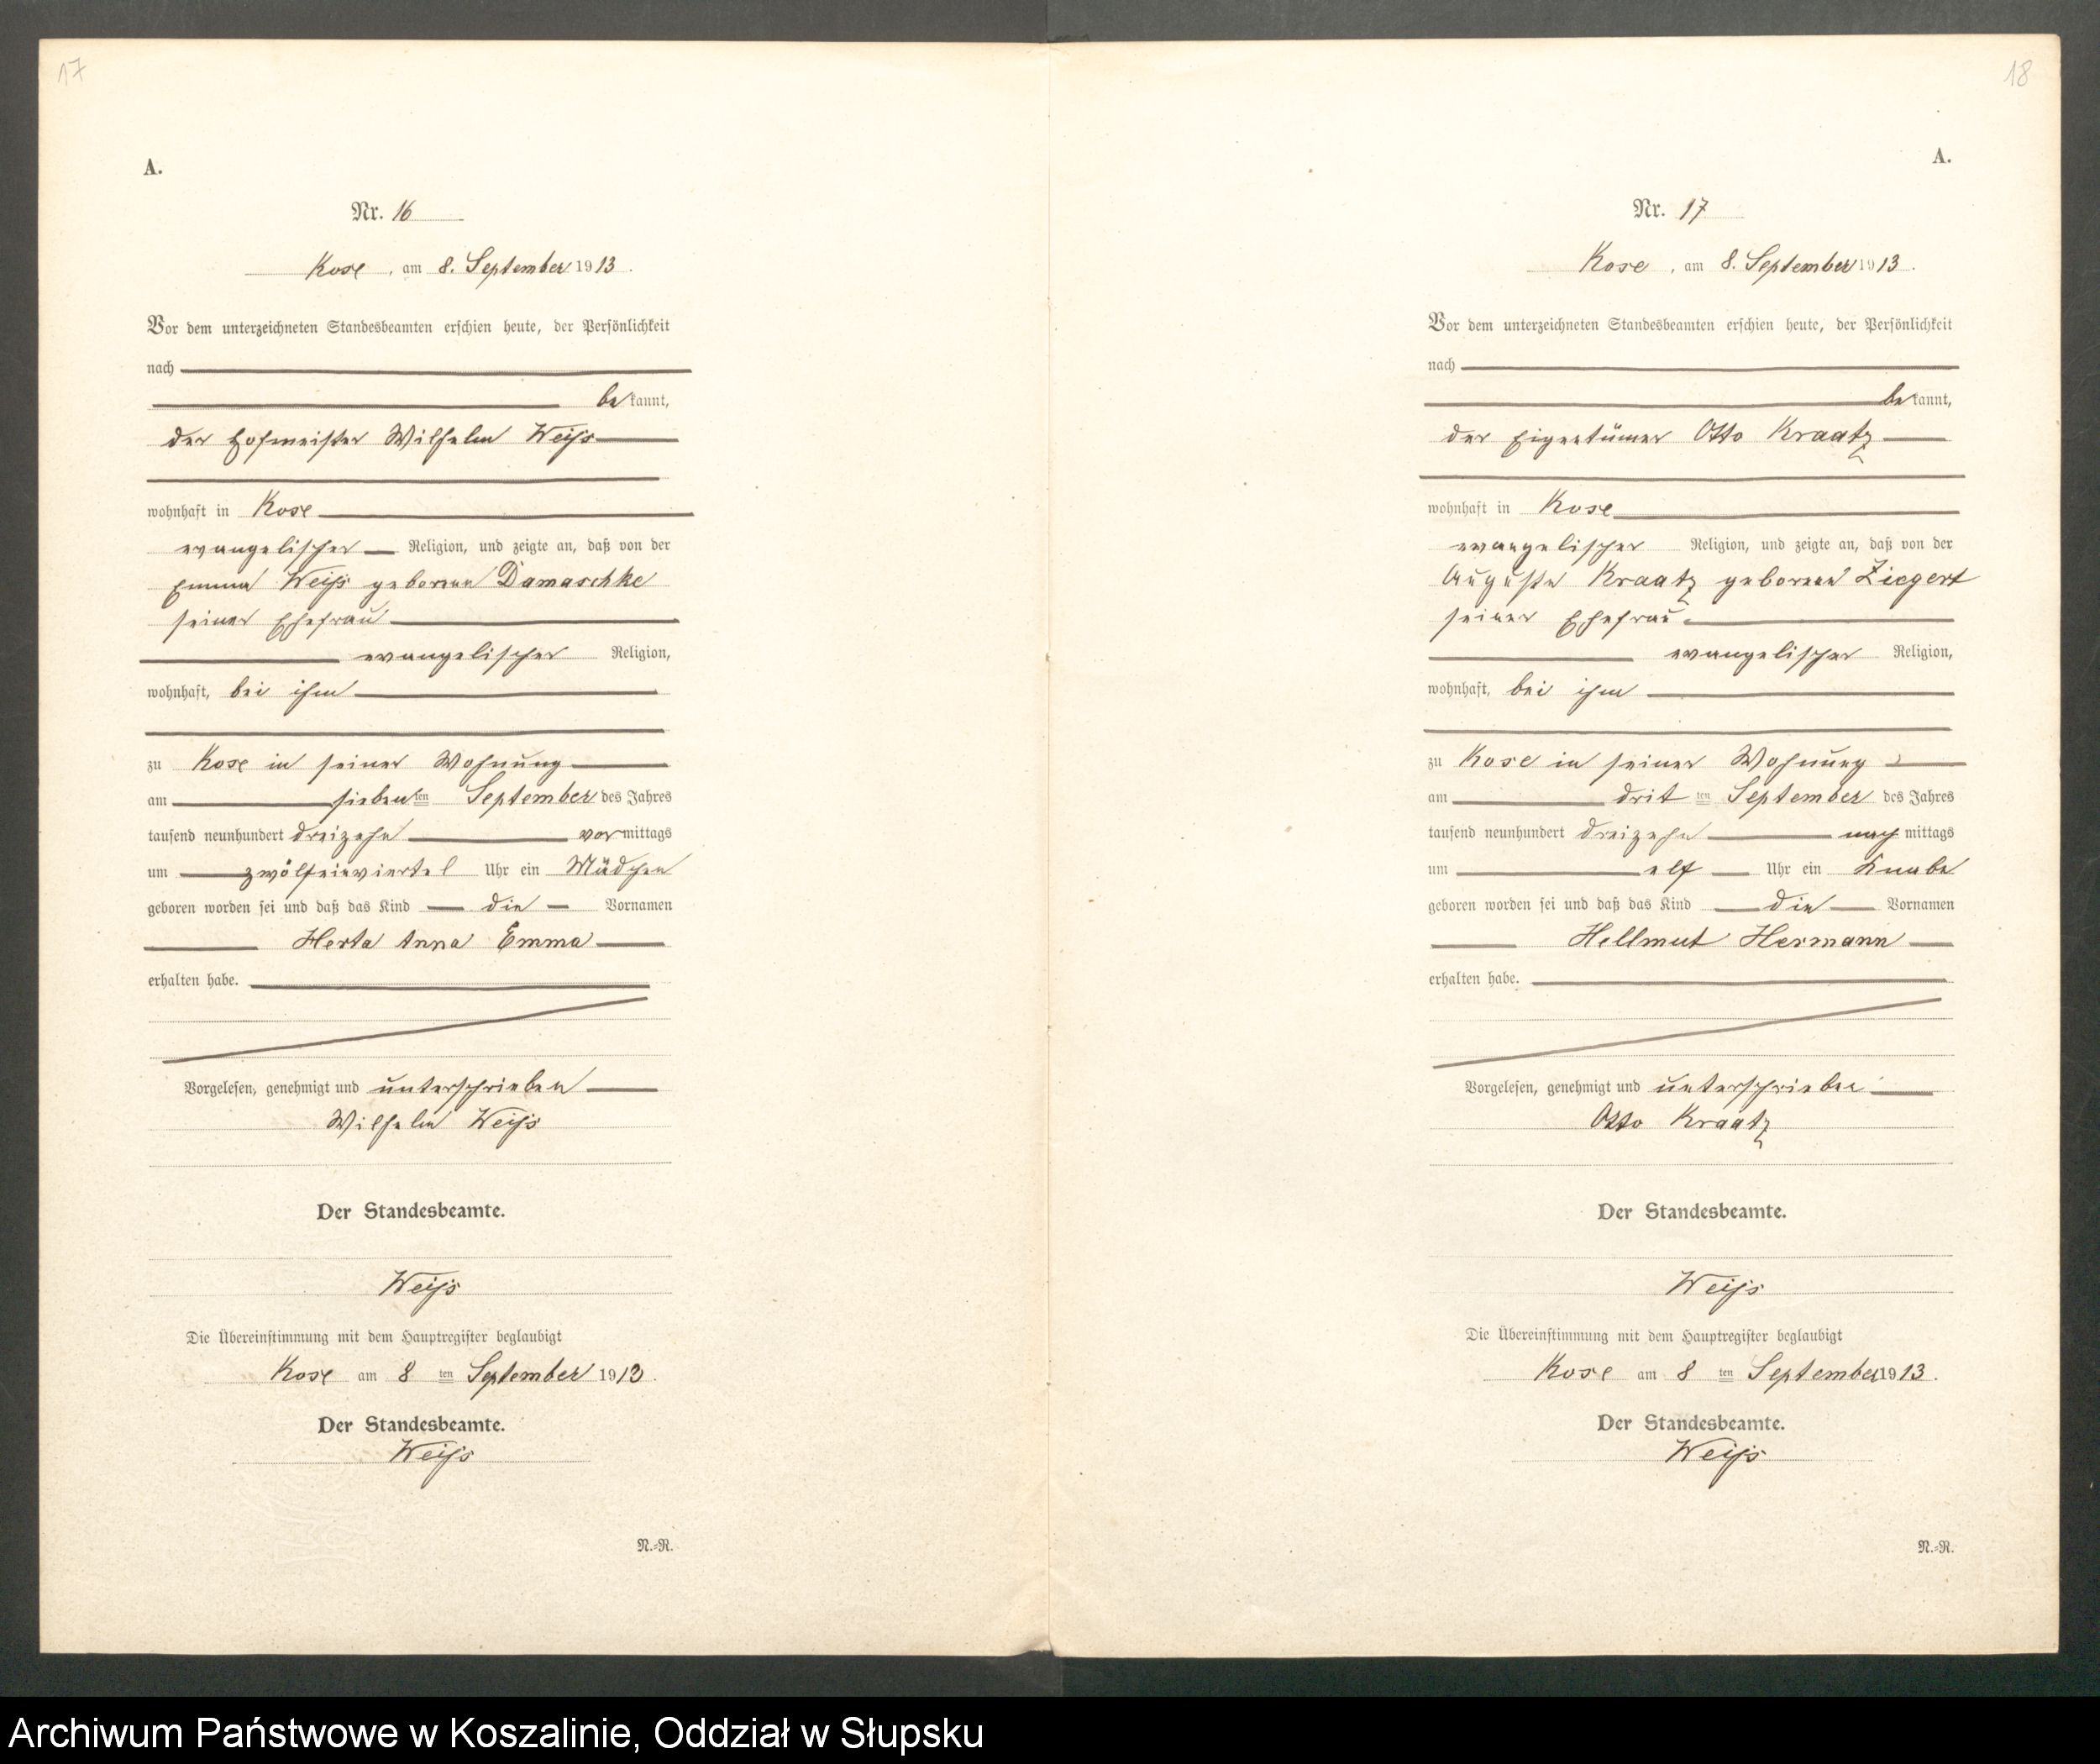 17
A.
Nr. 16
Kose, am 8. September 1913.
Vor dem unterzeichneten Standesbeamten erschien heute, der Persönlichkeit
nach
bekannt,
der Hofmeister Wilhelm Weiß
wohnhaft in Kose
evangelischer Religion, und zeigte an, daß von der
Emma Weiß geborene Damaschke
seiner Ehefrau
evangelischer Religion,
wohnhaft, bei ihm
zu Kose in seiner Wohnung
am siebenten September des Jahres
tausend neunhundert dreizehn vormittags
um zwölfeinviertel Uhr ein Mädchen
geboren worden sei und daß das Kind die Vornamen
Herta Anna Emma
erhalten habe.
Vorgelesen, genehmigt und unterschrieben
Wilhelm Weiß
Der Standesbeamte.
Weiß
Die Übereinstimmung mit dem Hauptregister beglaubigt
Kose am 8 ten September 1913.
Der Standesbeamte.
Weiß
N.-R.
18
A.
Nr. 17
Kose, am 8. September 1913.
Vor dem unterzeichneten Standesbeamten erschien heute, der Persönlichkeit
nach
bekannt,
der Eigentümer Otto Kraatz
wohnhaft in Kose
evangelischer Religion, und zeigte an, daß von der
Auguste Kraatz geborene Ziegert
seiner Ehefrau
evangelischer Religion,
wohnhaft, bei ihm
zu Kose in seiner Wohnung
am dritten September des Jahres
tausend neunhundert dreizehn nachmittags
um elf Uhr ein Knabe
geboren worden sei und daß das Kind die Vornamen
Hellmut Hermann
erhalten habe.
Vorgelesen, genehmigt und unterschrieben
Otto Kraatz
Der Standesbeamte.
Weiß
Die Übereinstimmung mit dem Hauptregister beglaubigt
Kose am 8 ten September 1913.
Der Standesbeamte.
Weiß
N.-R.
Archiwum Państwowe w Koszalinie, Oddział w Słupsku